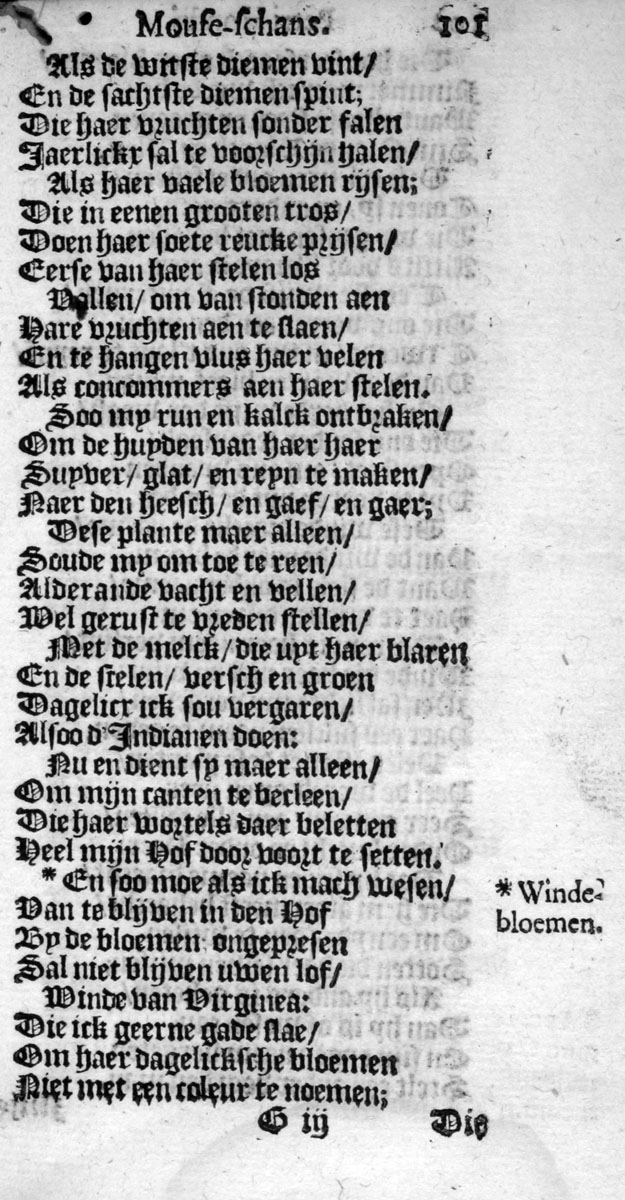 Mouse-schans. 101
Als de witste diemen vint/
En de sachtste diemen spint;
Die haer vruchten sonder falen
Jaerlickx sal te voorschijn halen/
Als haer vaele bloemen rijsen;
Die in eenen grooten tros/
Doen haer soete reucke prijsen/
Eerse van haer stelen los
Vallen/ om van stonden aen
Hare vruchten aen te slaen/
En te hangen vlus haer velen
Als concommers aen haer stelen.
Soo my run en kalck ontbraken/
Om de huyden van haer haer
Suyver/ glat/ en reyn te maken/
Naer den heesch/ en gaef/ en gaer;
Dese plante maer alleen/
Soude my om toe te reen/
Alderande vacht en vellen/
Wel gerust te vreden stellen/
Met de melck/ die uyt haer blaren
En de stelen/ versch en groen
Dagelicx ick sou vergaren/
Alsoo d'Indianen doen:
Nu en dient sy maer alleen/
Om mijn canten te becleen/
Die haer wortels daer beletten
Heel mijn Hof door voort te setten.
* En soo moe als ick mach wesen/
Van te blijven in den Hof
By de bloemen ongepresen
Sal niet blijven uwen lof/
Winde van Virginea:
Die ick geerne gade slae/
Om haer dagelicksche bloemen
Niet met een coleur te noemen;
* Winde-
bloemen.
G iij Die